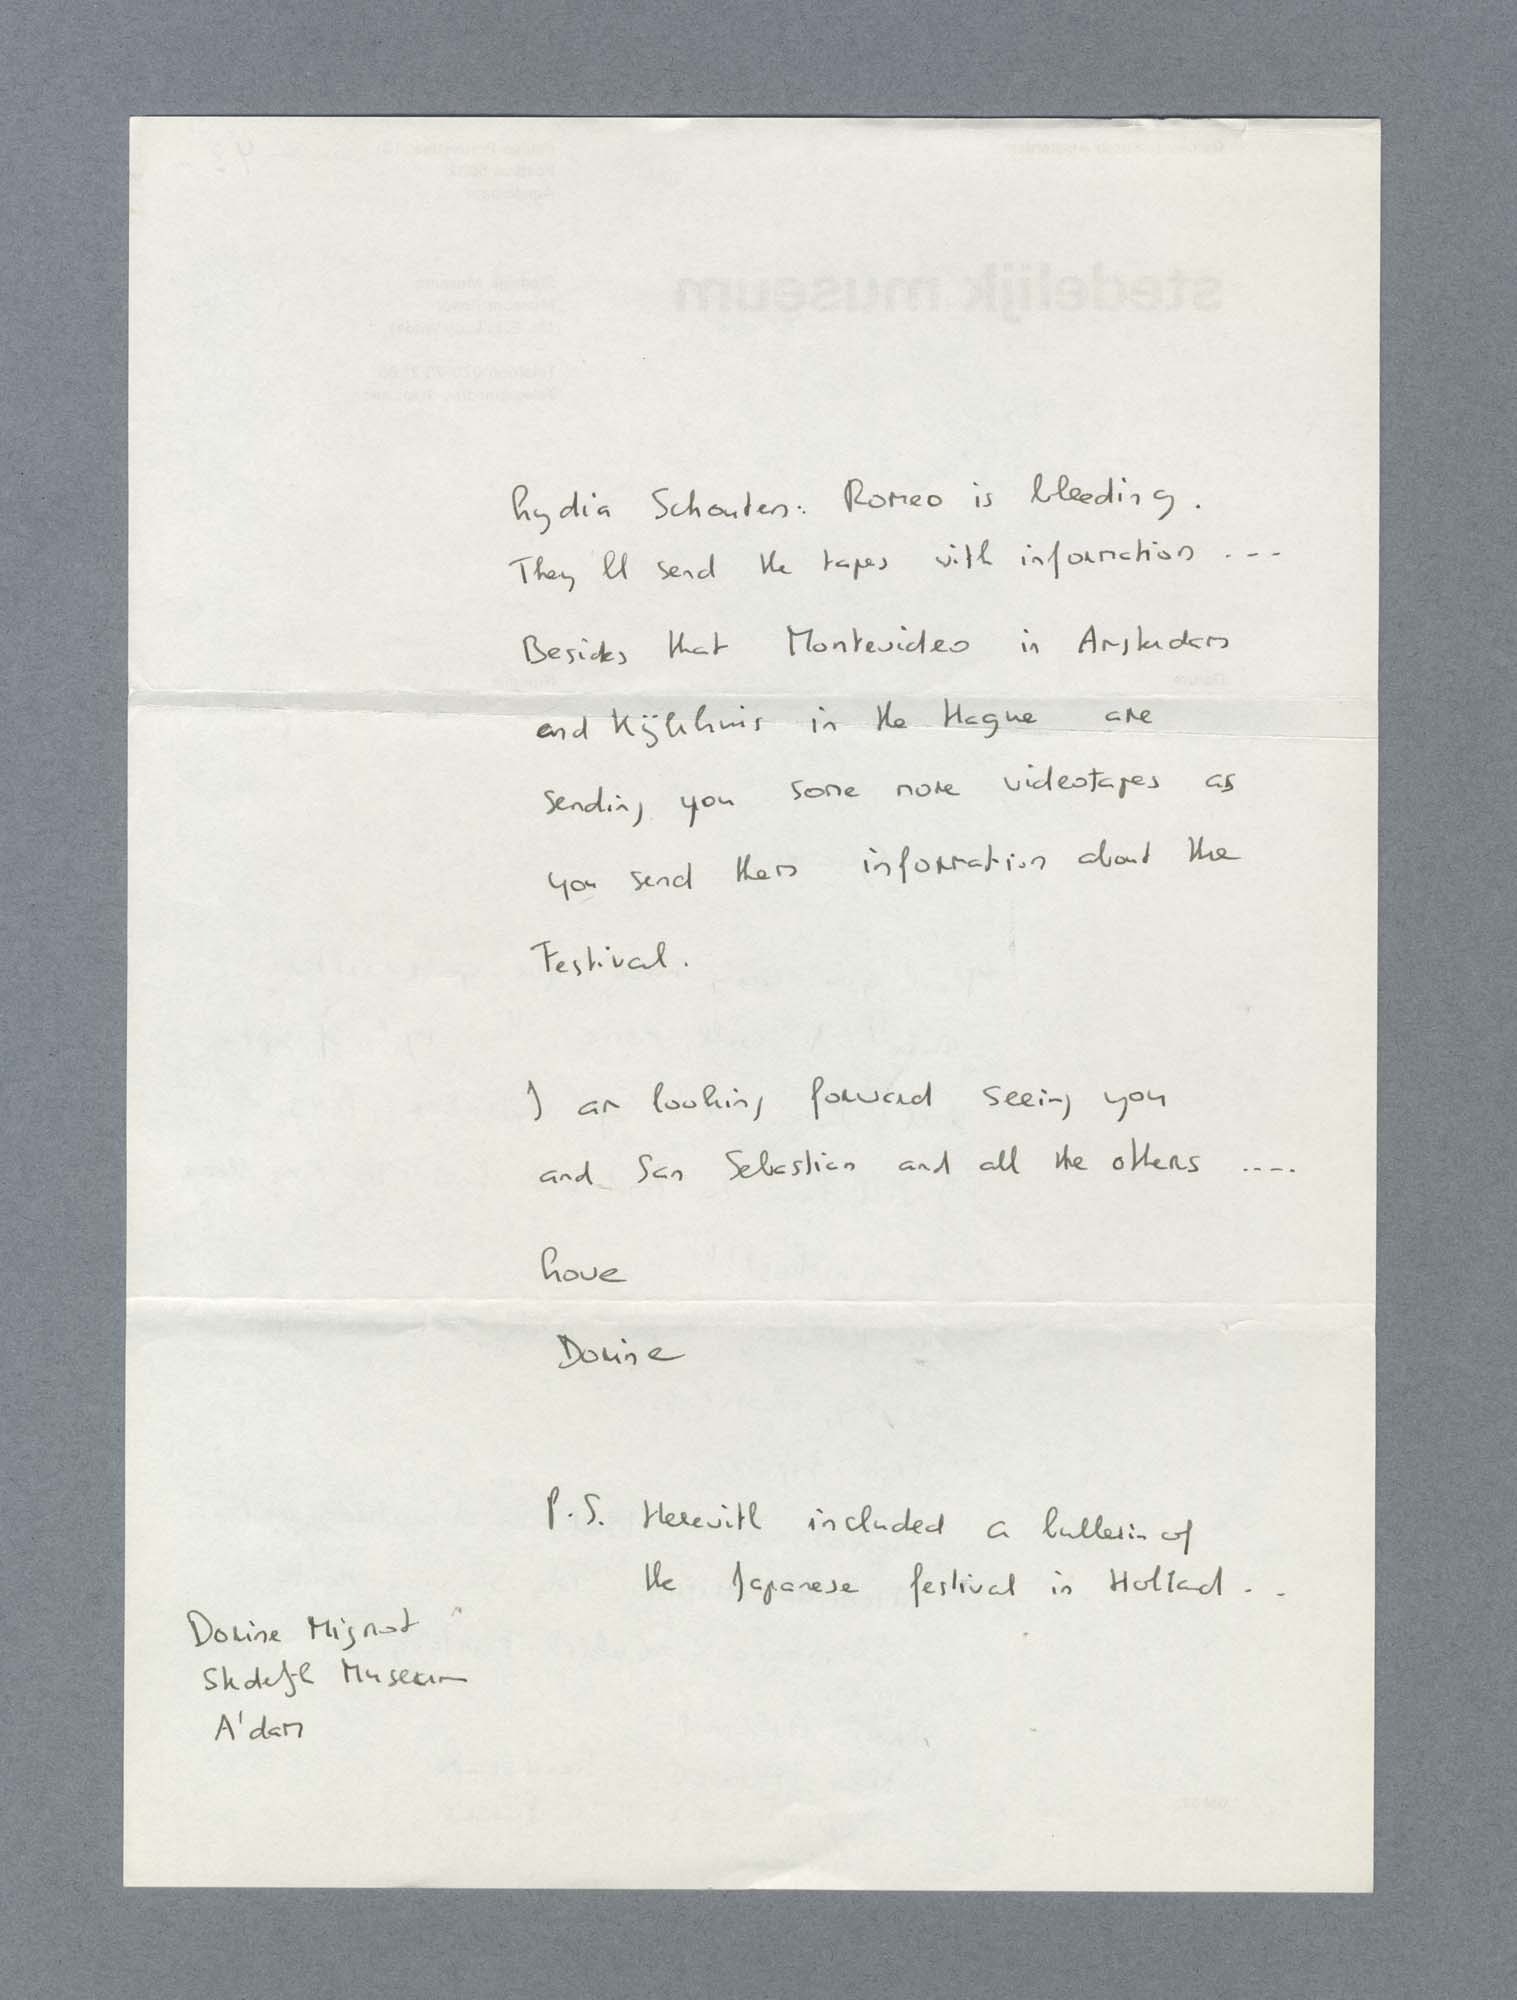 Lydia Schouten: Romeo is bleeding.
They'll send the tapes with information ----
Besides that Montevideo in Amsterdam
and Kijkhuis in the Hague are
sending you some more videotapes as
you send them information about the
Festival.
I am looking forward seeing you
and San Sebastian and all the others ----
Love
Dorine
P.S. Herewith included a bulletin of
the Japanese festival in Holland - -
Dorine Mignot
Stedelijk Museum
A'dam
stedelijk museum